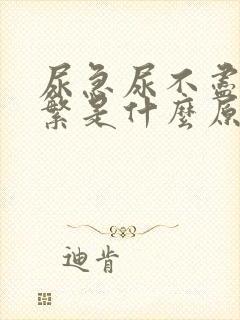 尿急尿不盡
繁是什麼原
迪肯